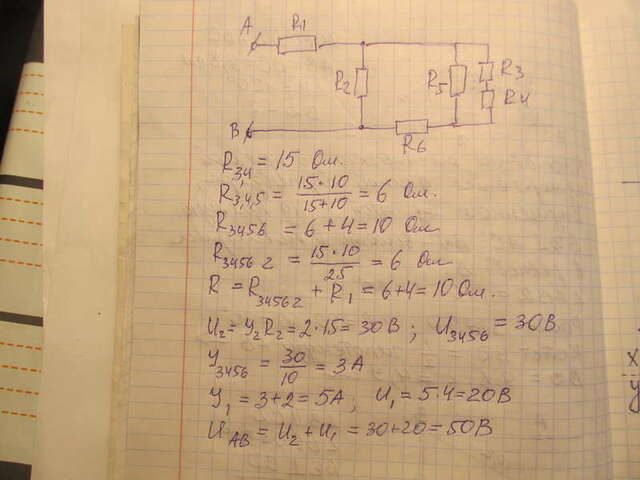 A R1
R2 R5 R3
R4
B R6
R3,4 = 15 Ом.
R3,4,5 = 15·10 / 15+10 = 6 Ом.
R3456 = 6 + 4 = 10 Ом
R3456 2 = 15·10 / 25 = 6 Ом
R = R34562 + R1 = 6+4 = 10 Ом.
U2 = У2 R2 = 2·15 = 30В ; U3456 = 30В
У3456 = 30 / 10 = 3А
У1 = 3+2 = 5А ; U1 = 5·4 = 20В
UAB = U2 + U1 = 30+20 = 50В
x
y